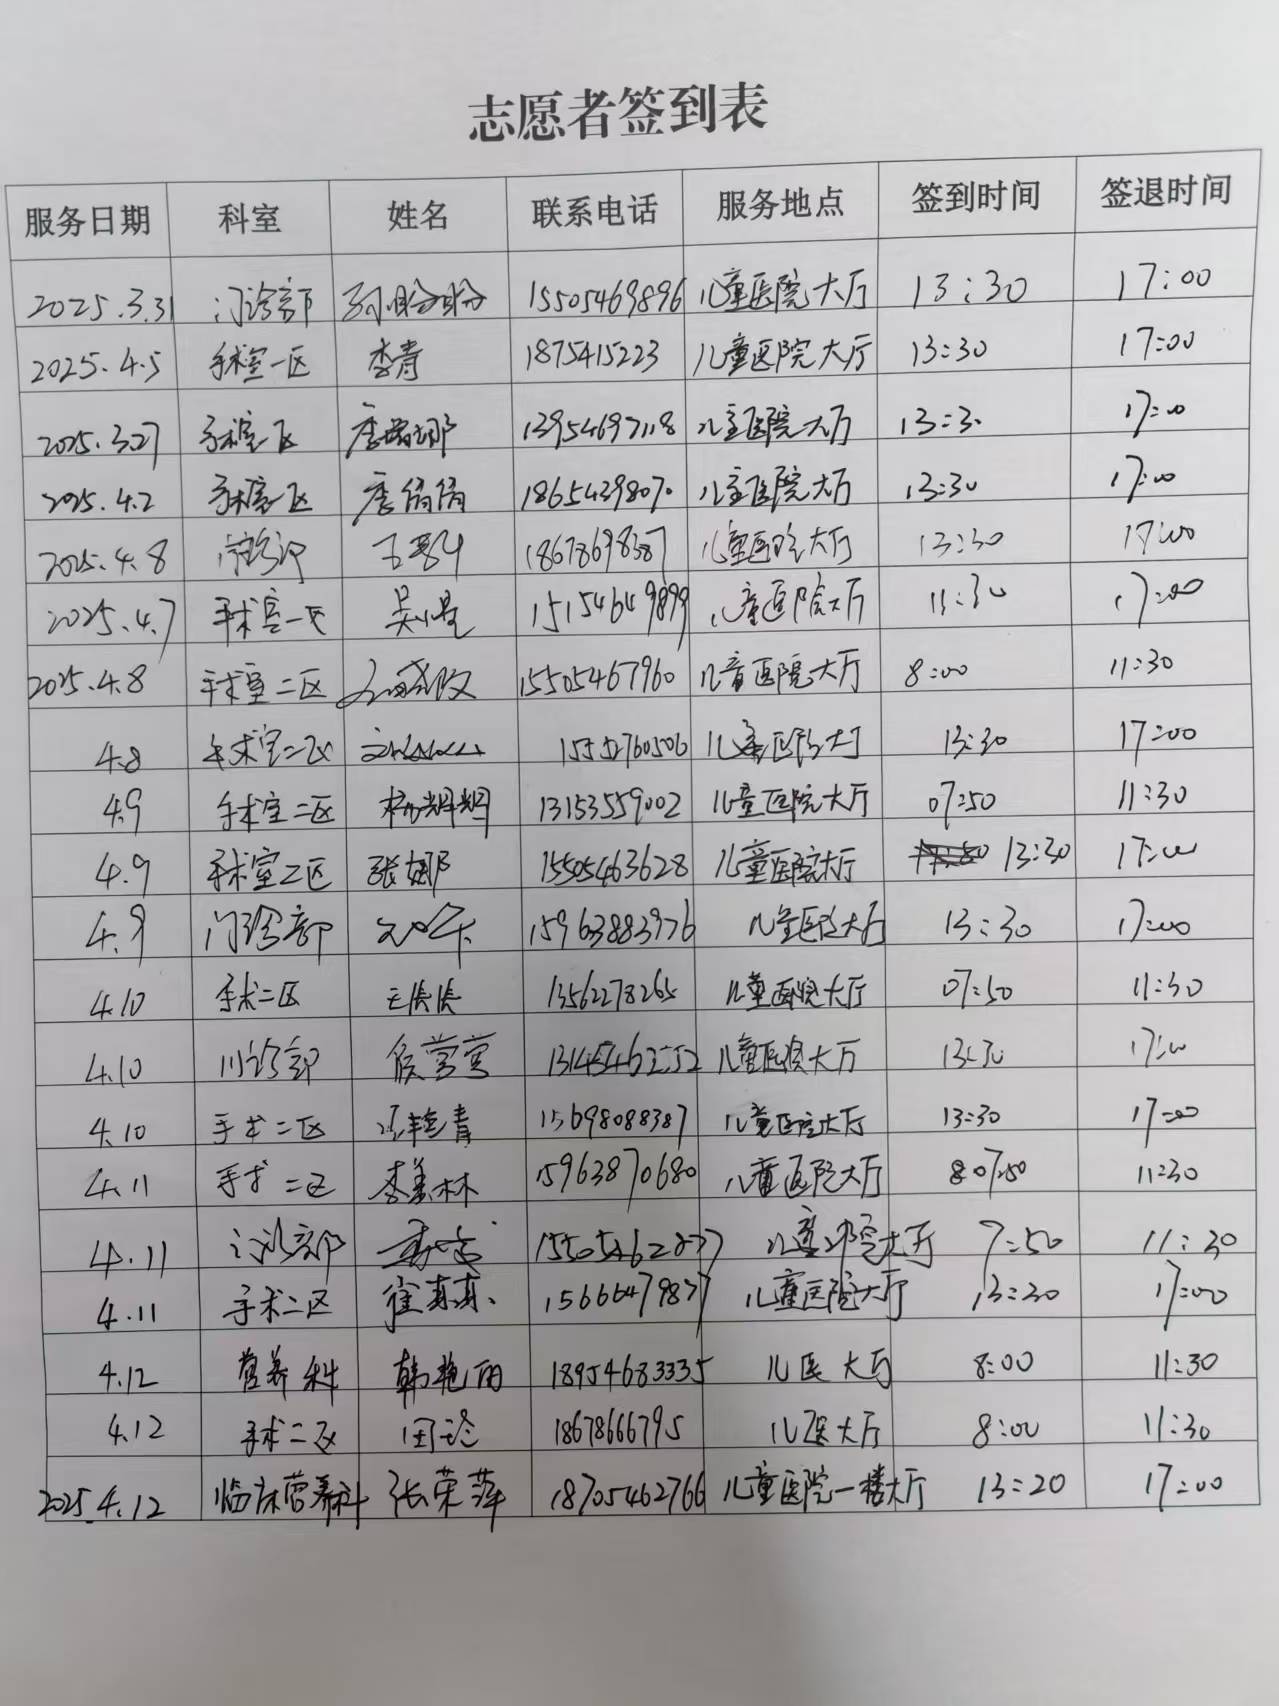 志愿者签到表
服务日期 科室 姓名 联系电话 服务地点 签到时间 签退时间
2025.3.31 门诊部 孙盼盼 15505469896 儿童医院大厅 13:30 17:00
2025.4.5 手术室一区 李青 1875415223 儿童医院大厅 13:30 17:00
2025.3.27 手术室一区 13954697118 儿童医院大厅 13:30 17:00
2025.4.2 手术室一区 18654398070 儿童医院大厅 13:30 17:00
2025.4.8 门诊部 18678698387 儿童医院大厅 13:30 17:00
2025.4.7 手术室一区 15154649899 儿童医院大厅 17:00
2025.4.8 手术室二区 15505467960 儿童医院大厅 8:00 11:30
4.8 手术室二区 15552760506 儿童医院大厅 13:30 17:00
4.9 手术室二区 杨辉辉 13153559002 儿童医院大厅 07:50 11:30
4.9 手术室二区 张娜 15505463628 儿童医院大厅 13:30 17:00
4.9 门诊部 15963883976 儿童医院大厅 13:30 17:00
4.10 手术二区 13562278265 儿童医院大厅 07:50 11:30
4.10 门诊部 侯营营 儿童医院大厅 13:30 17:00
4.10 手术二区 15698088387 儿童医院大厅 13:30 17:00
4.11 手术二区 李美林 15963870680 儿童医院大厅 07:50 11:30
4.11 门诊部 儿童医院大厅 7:50 11:30
4.11 手术二区 崔真真 15666479877 儿童医院大厅 17:00
4.12 营养科 韩艳丽 18954683335 儿医大厅 8:00 11:30
4.12 手术二区 田玲 18678666795 儿医大厅 8:00 11:30
2025.4.12 临床营养科 张荣萍 18705462766 儿童医院一楼大厅 13:20 17:00